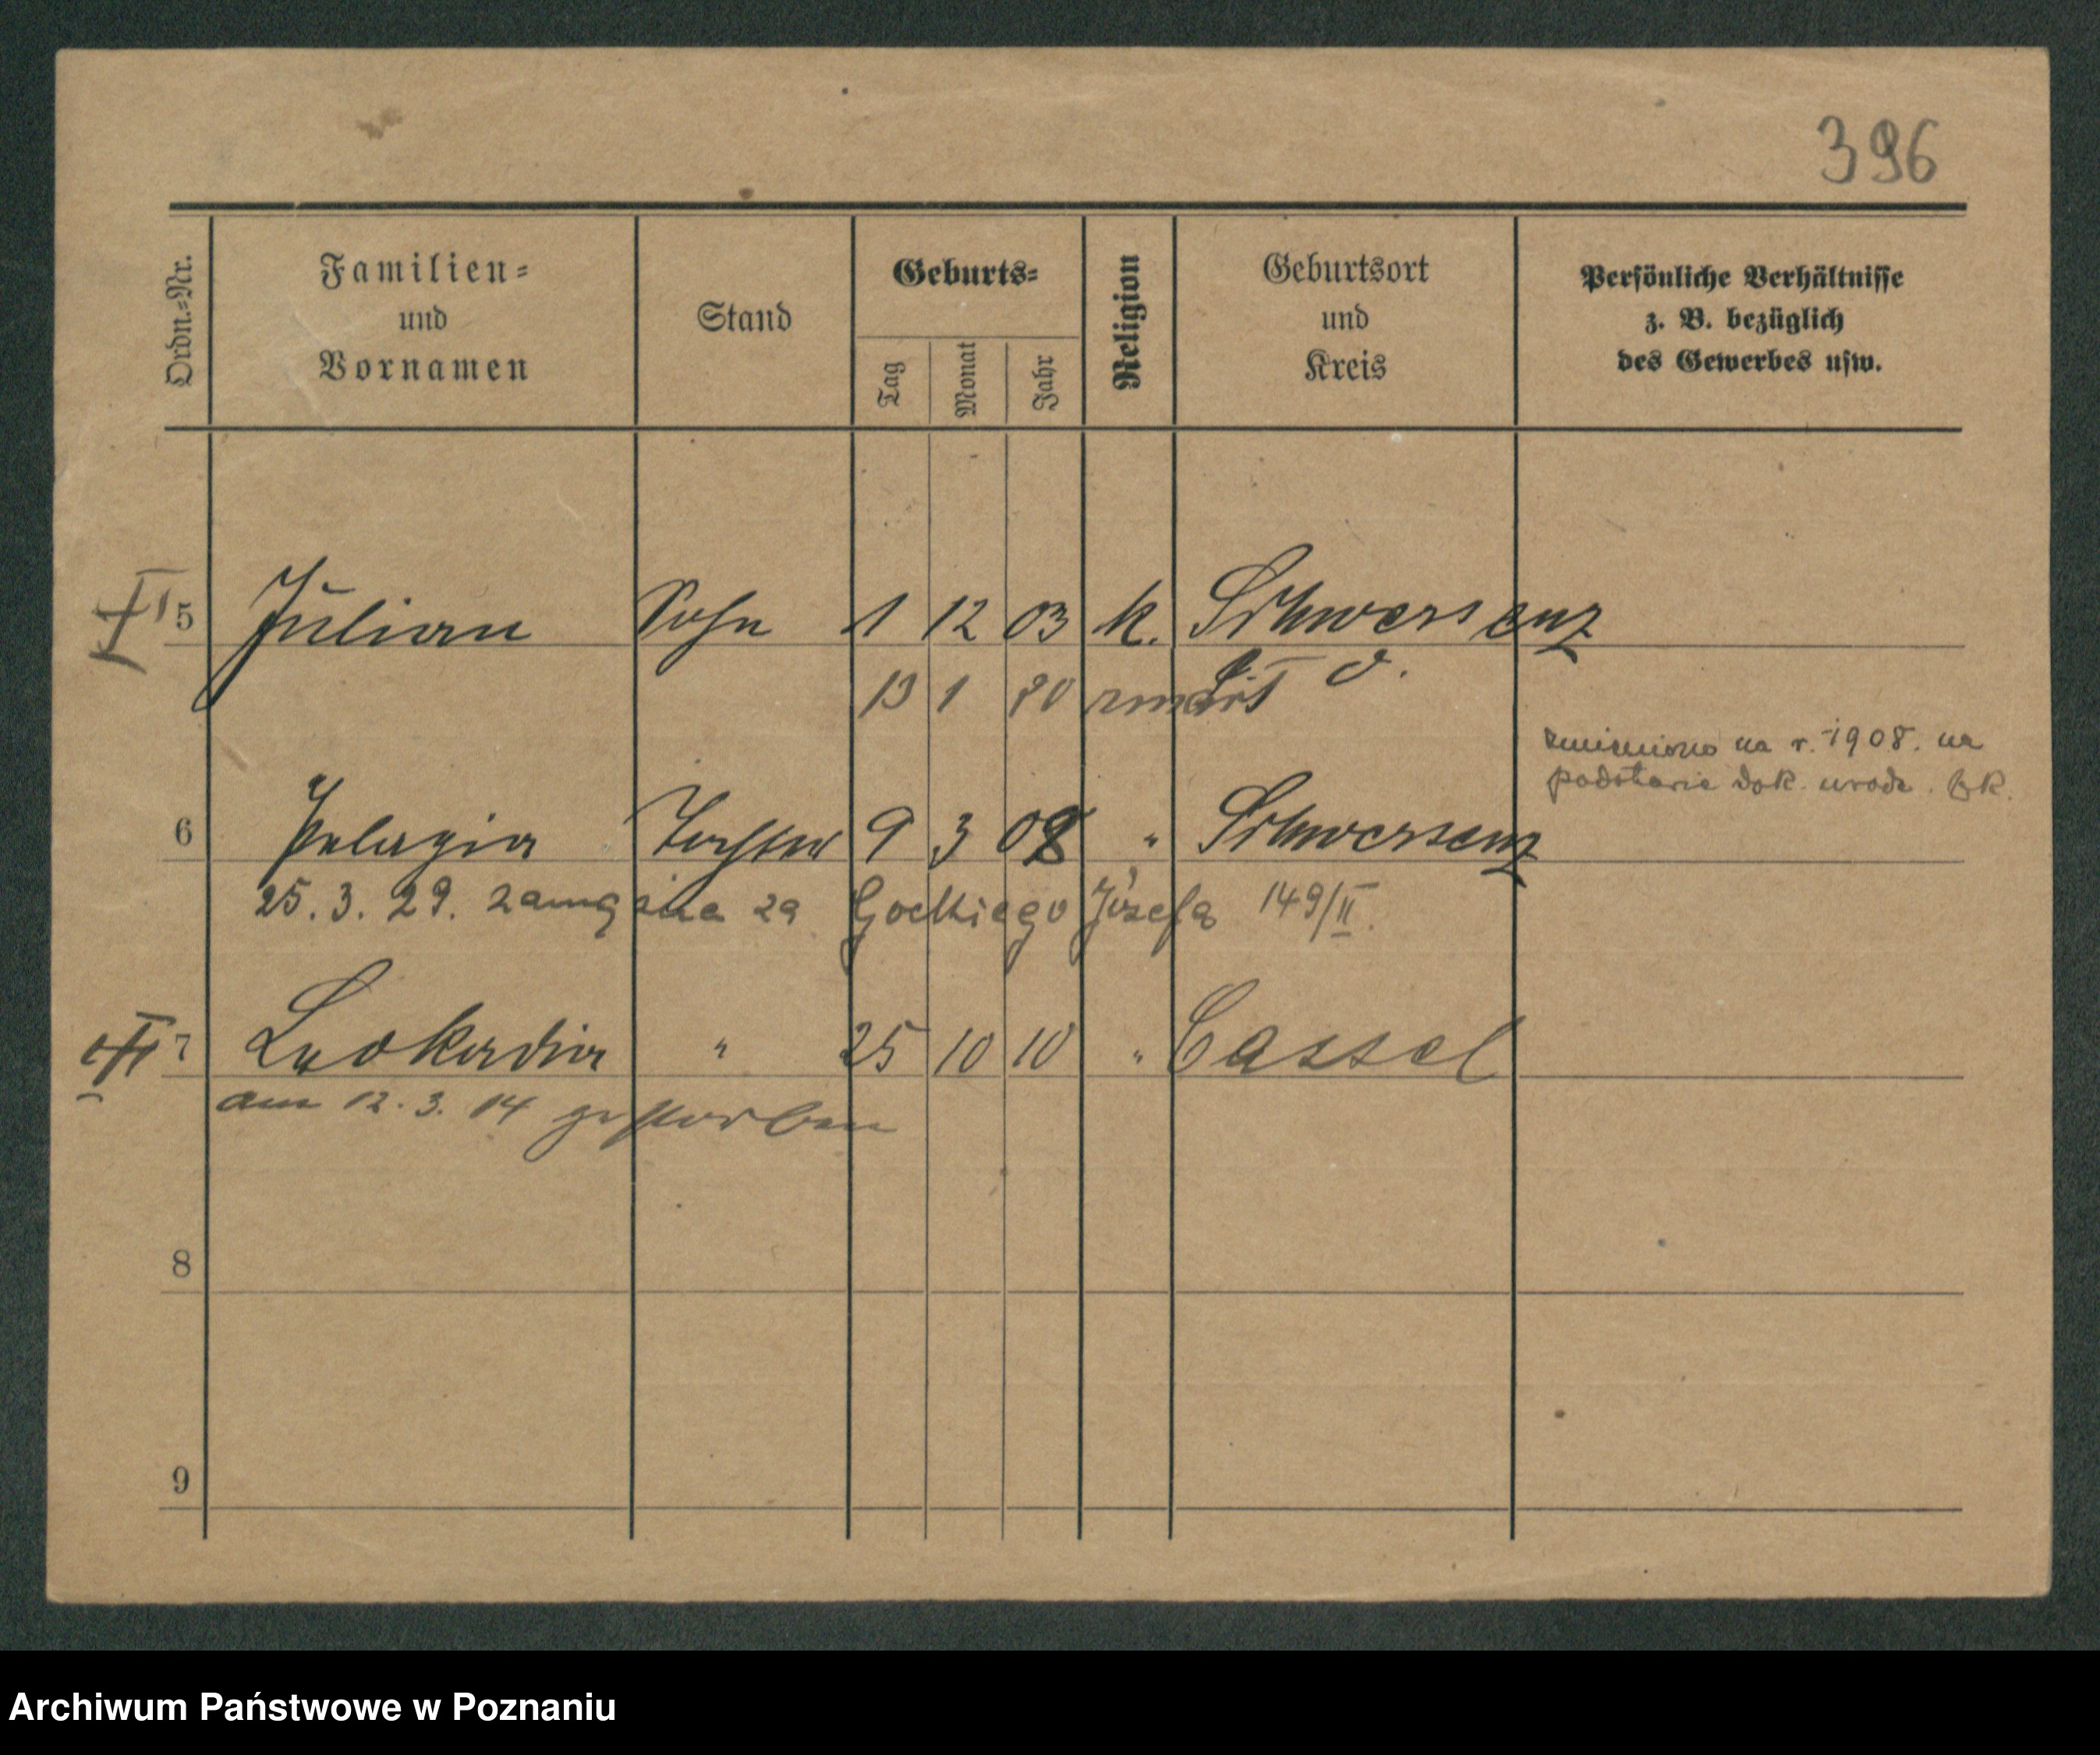 396
Ordn.-Nr.
Familien-
und
Vornamen
Stand
Geburts-
Tag
Monat
Jahr
Religion
Geburtsort
und
Kreis
Persönliche Verhältnisse
z. B. bezüglich
des Gewerbes usw.
5 Julian Sohn 1 12 03 k. Schwersenz
13 1 zmarł
zmieniono na r. 1908. na
podstawie dok. urodz.
6 Pelagia Tochter 9 3 08 " Schwersenz
25. 3. 29. zamężna za Józefa 149/II.
7 Leokadia " 25 10 10 " Cassel
am 12. 3. 14 gestorben
8
9
Archiwum Państwowe w Poznaniu